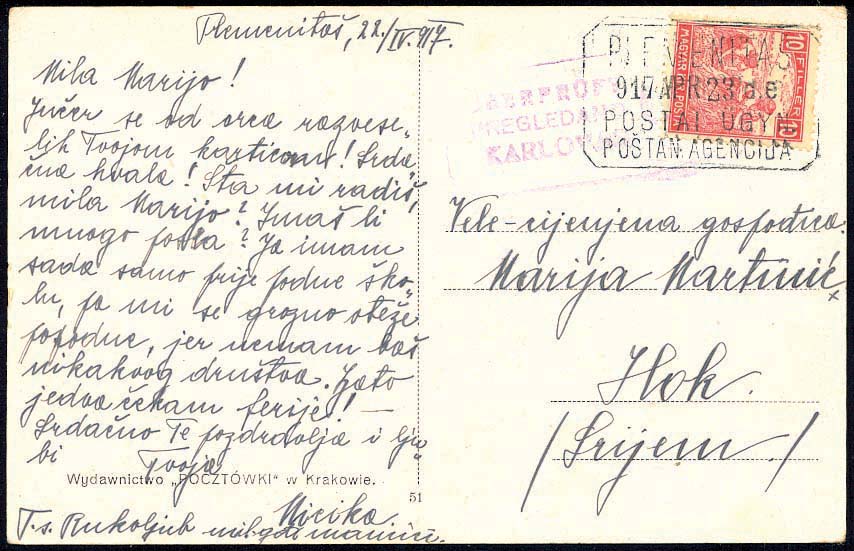 Plemenitaš, 22./IV. 917.
Mila Marijo!
Jučer se od srca razvese„
lih Tvojom karticom! Srda„
čna hvala! Šta mi radiš,
mila Marijo? Imaš li
mnogo posla? Ja imam
sada samo prije podne ško„
lu, pa mi se grozno oteže
popodne, jer nemam baš
nikakvog društva. Zato
jedva čekam ferije! —
Srdačno Te pozdravlja i lju„
bi Tvoja
Micika
T. s. Rukoljub mamici.
Wydawnictwo „POCZTÓWKI" w Krakowie.
51
PLEMENITAS
917 APR 23 d.e
POSTAI ÜGYN
POŠTAN. AGENCIJA
ÜBERPRÜFT
PREGLEDANO
KARLOVAC
10 FILLER 10
MAGYAR KIR. POSTA
Vele-cijenjena gospođica
Marija Martinić
Ilok.
(Srijem.)